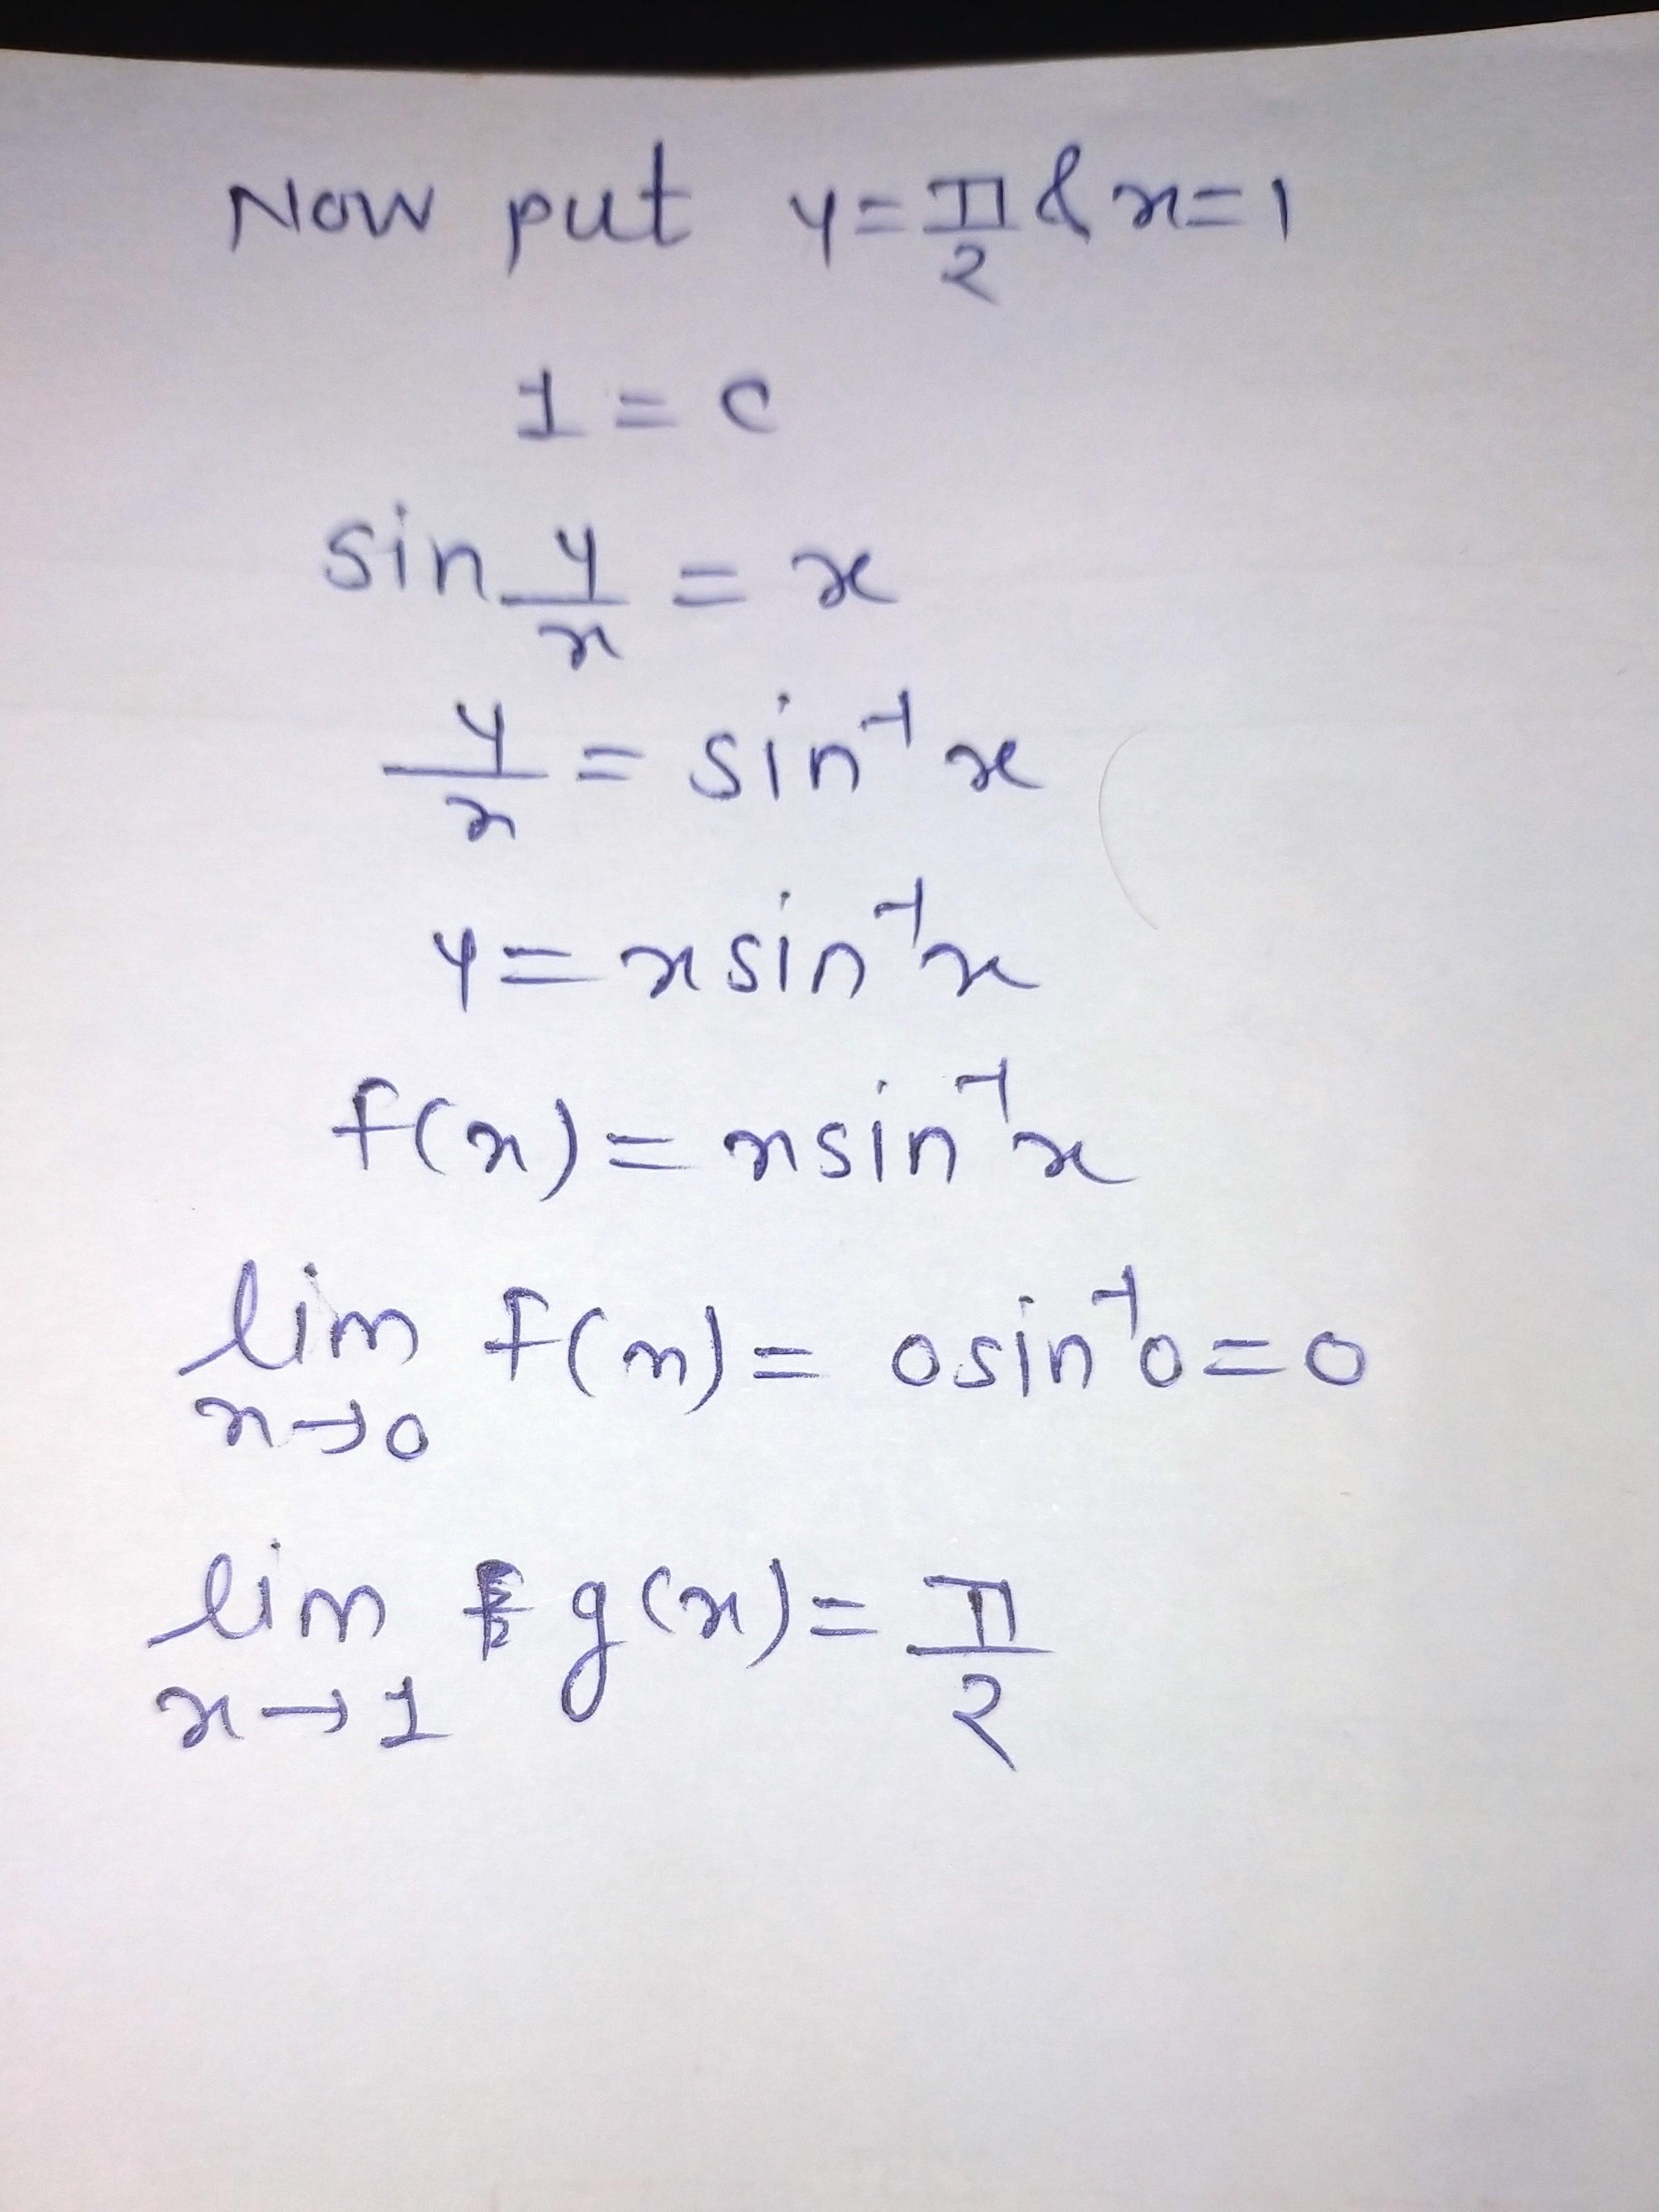 Now put y = π/2 & x = 1
1 = c
sin y/x = x
y/x = sin⁻¹ x
y = x sin⁻¹ x
f(x) = x sin⁻¹ x
lim x→0 f(x) = 0 sin⁻¹ 0 = 0
lim x→1 g(x) = π/2